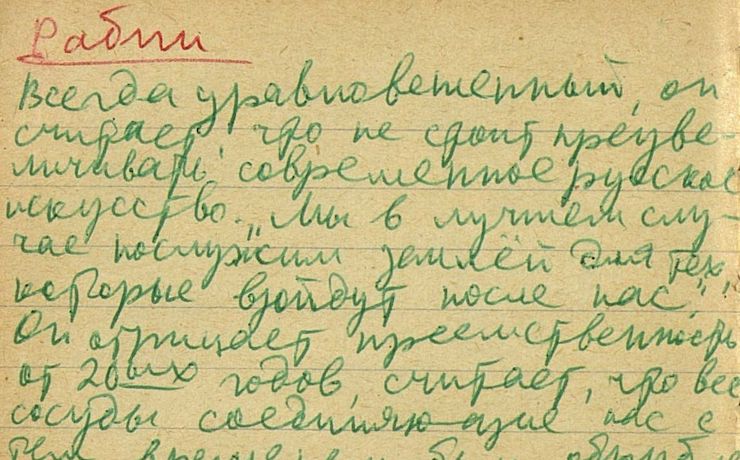 Рабин
Всегда уравновешенный, он
считает, что не стоит преуве-
личивать современное русское
искусство. „Мы в лучшем слу-
чае послужим землёй для тех,
которые взойдут после нас."
Он отрицает преемственность
от 20ых годов, считает, что все
сосуды соединяющие нас с
тем временем были